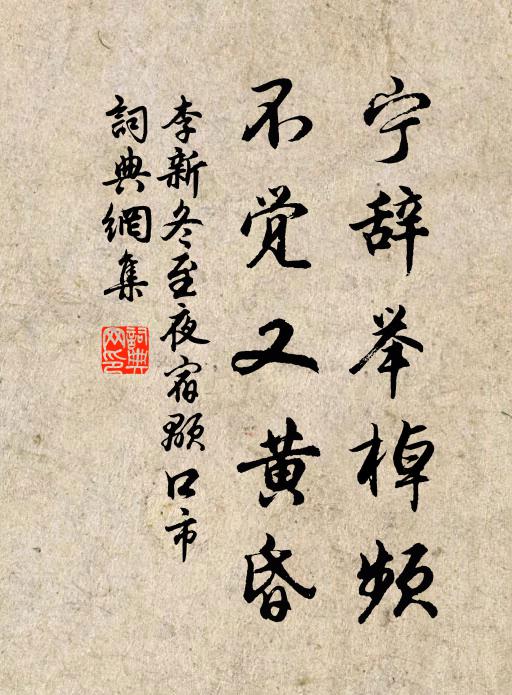 宁辞举棹频
不觉又黄昏
李新冬至夜宿颢口市
詞典網集
詞典网印